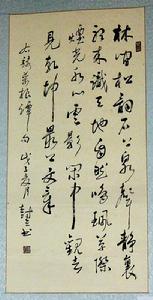 林間松韻石上泉聲靜裏
聽来識天地自然鳴珮草際
煙光水心雲影閒中觀去
見乾坤最上文章
右錄菜根譚句 戊 月 書